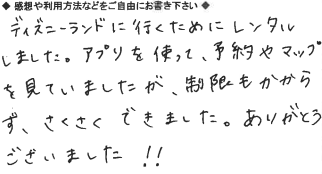 ◆ 感想や利用方法などをご自由にお書き下さい ◆
ディズニーランドに行くためにレンタル
しました。アプリを使って、予約やマップ
を見ていましたが、制限もかから
ず、さくさくできました。ありがとう
ございました!!